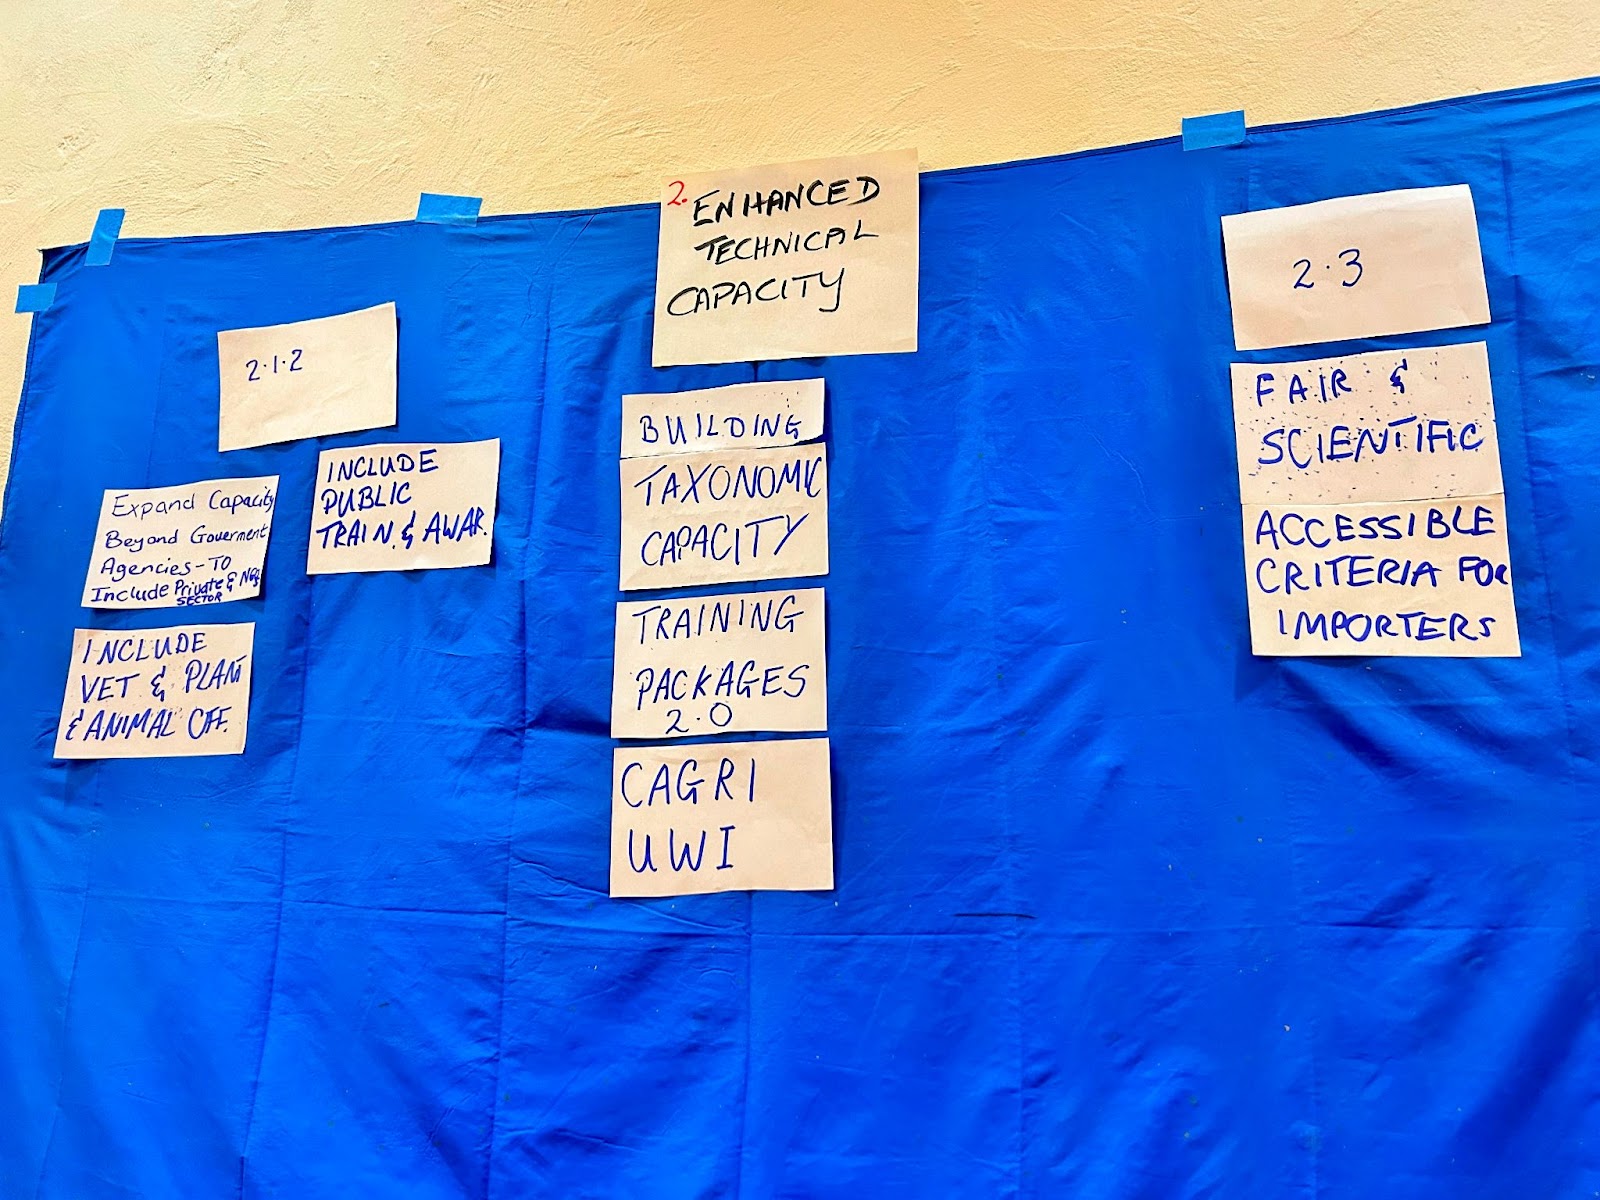 2. ENHANCED
TECHNICAL
CAPACITY
2.1.2
Expand Capacity
Beyond Government
Agencies - TO
Include Private &
SECTOR
INCLUDE
VET & PLANT
& ANIMAL OFF.
INCLUDE
PUBLIC
TRAIN. & AWAR.
BUILDING
TAXONOMIC
CAPACITY
TRAINING
PACKAGES
2.0
CAGRI
UWI
2.3
FAIR &
SCIENTIFIC
ACCESSIBLE
CRITERIA FOR
IMPORTERS